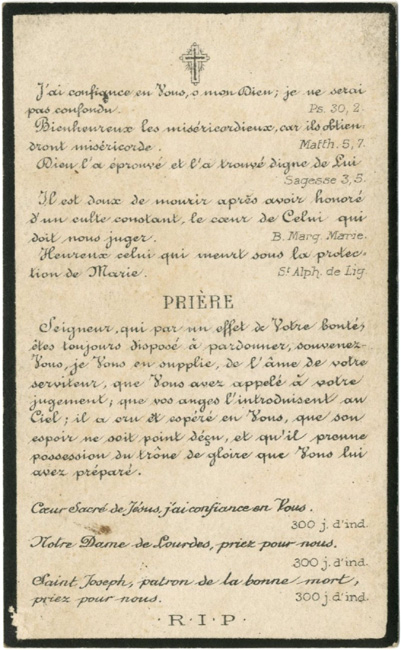 J'ai confiance en Vous, o mon Dieu; je ne serai
pas confondu. Ps. 30, 2.
Bienheureux les miséricordieux, car ils obtien-
dront miséricorde. Matth. 5, 7.
Dieu l'a éprouvé et l'a trouvé digne de Lui
Sagesse 3, 5.
Il est doux de mourir après avoir honoré
d'un culte constant, le cœur de Celui qui
doit nous juger. B. Marg. Marie.
Heureux celui qui meurt sous la protec-
tion de Marie. St Alph. de Lig.
PRIÈRE
Seigneur, qui par un effet de Votre bonté,
êtes toujours disposé à pardonner, souvenez-
Vous, je Vous en supplie, de l'âme de votre
serviteur, que Vous avez appelé à votre
jugement; que vos anges l'introduisent au
Ciel; il a cru et espéré en Vous, que son
espoir ne soit point déçu, et qu'il prenne
possession du trône de gloire que Vous lui
avez préparé.
Cœur Sacré de Jésus, j'ai confiance en Vous.
300 j. d'ind.
Notre Dame de Lourdes, priez pour nous.
300 j. d'ind.
Saint Joseph, patron de la bonne mort,
priez pour nous. 300 j. d'ind.
· R · I · P ·